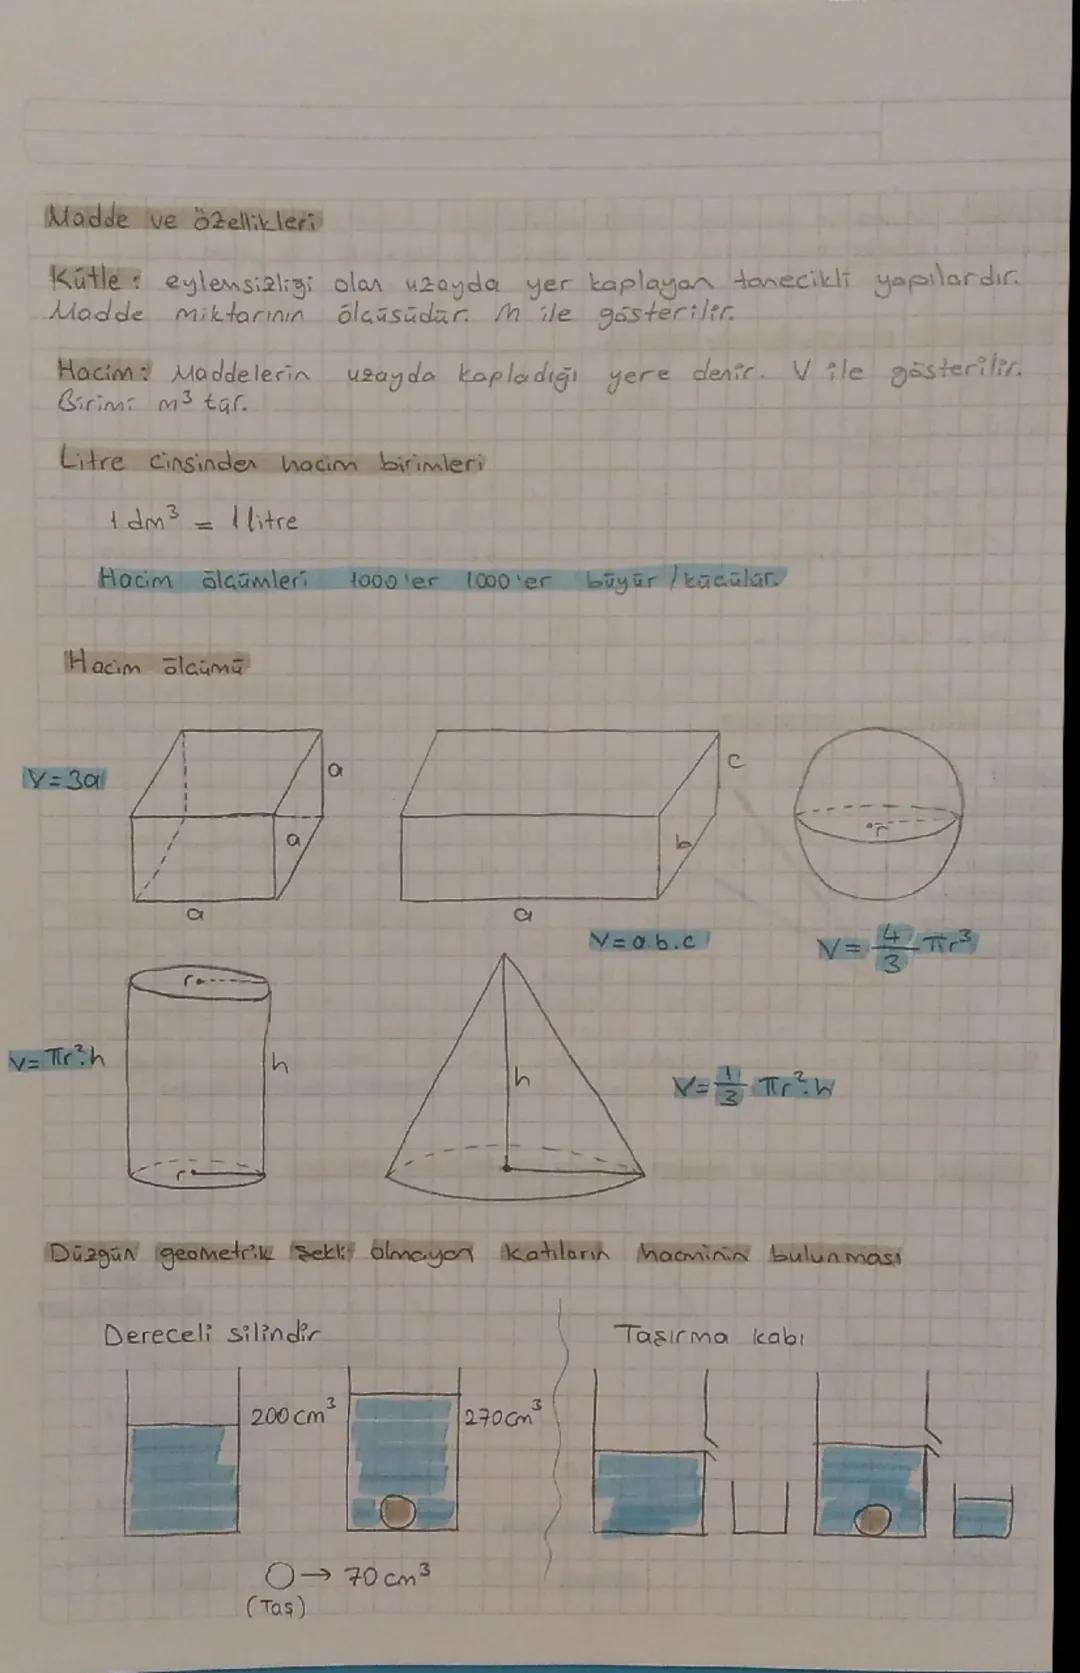 Madde ve özellikleri
Kütle: eylemsizliği olan uzayda yer kaplayan tanecikli yapılardır.
Madde miktarının ölçüsüdür. m ile gösterilir.
Hacim: Maddelerin uzayda kapladığı yere denir. V ile gösterilir.
Birimi m³ tür.
Litre cinsinden hacim birimleri
1 dm³ = 1 litre
Hacim ölçümleri 1000'er 1000'er büyür / küçülür.
Hacim ölçümü
V=3a
a
a
a
c
b
a
V=a.b.c
r
V=4/3 πr³
r
h
r
V=πr².h
h
V=1/3 πr².h
Düzgün geometrik şekli olmayan katıların hacminin bulunması
Dereceli silindir
200 cm³
270 cm³
→ 70 cm³
(Taş)
Taşırma kabı